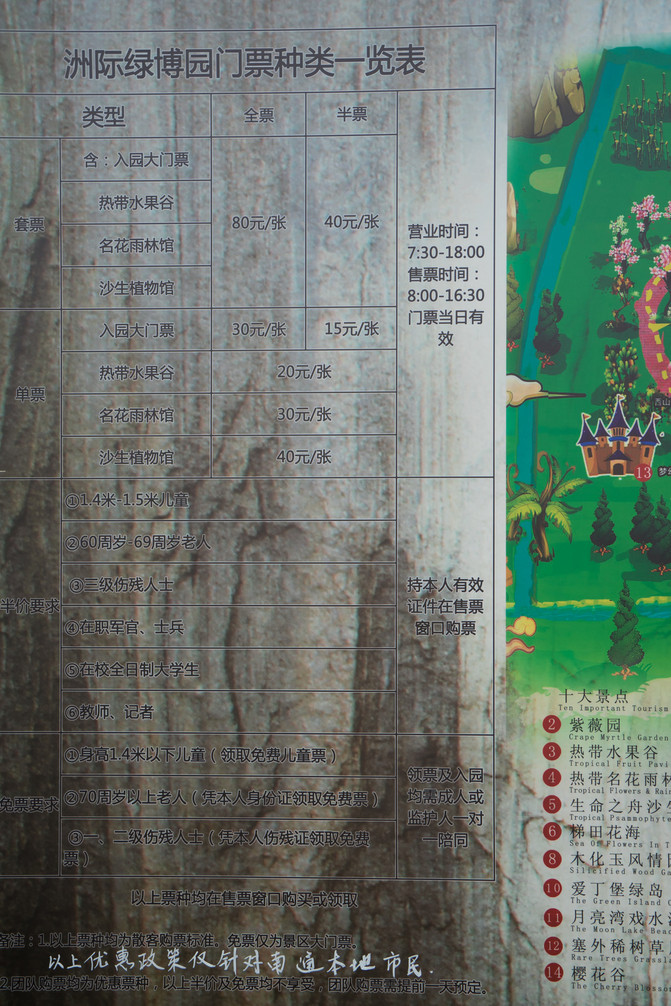 洲际绿博园门票种类一览表
类型 全票 半票
套票
含：入园大门票
热带水果谷
名花雨林馆
沙生植物馆
80元/张 40元/张
单票
入园大门票 30元/张 15元/张
热带水果谷 20元/张
名花雨林馆 30元/张
沙生植物馆 40元/张
营业时间：
7:30-18:00
售票时间：
8:00-16:30
门票当日有
效
半价要求
①1.4米-1.5米儿童
②60周岁-69周岁老人
③三级伤残人士
④在职军官、士兵
⑤在校全日制大学生
⑥教师、记者
持本人有效
证件在售票
窗口购票
免票要求
①身高1.4米以下儿童（领取免费儿童票）
②70周岁以上老人（凭本人身份证领取免费票）
③一、二级伤残人士（凭本人伤残证领取免费
票）
领票及入园
均需成人或
监护人一对
一陪同
以上票种均在售票窗口购买或领取
备注：1.以上票种均为散客购票标准。免票仅为景区大门票。
以上优惠政策仅针对南通本地市民.
2.团队购票均为优惠票种，以上半价及免票均不享受，团队购票需提前一天预定。
13 梦幻
十大景点
Ten Important Tourism
2 紫薇园
Crape Myrtle Garden
3 热带水果谷
Tropical Fruit Pavi
4 热带名花雨林
Tropical Flowers & Rai
5 生命之舟沙生
Tropical Psammophyte
6 梯田花海
Sea Of Flowers In T
8 木化玉风情园
Silicified Wood Ga
10 爱丁堡绿岛
The Green Island O
11 月亮湾戏水
The Moon Lake Beac
12 塞外稀树草
Rare Trees Grassla
14 樱花谷
The Cherry Blosso